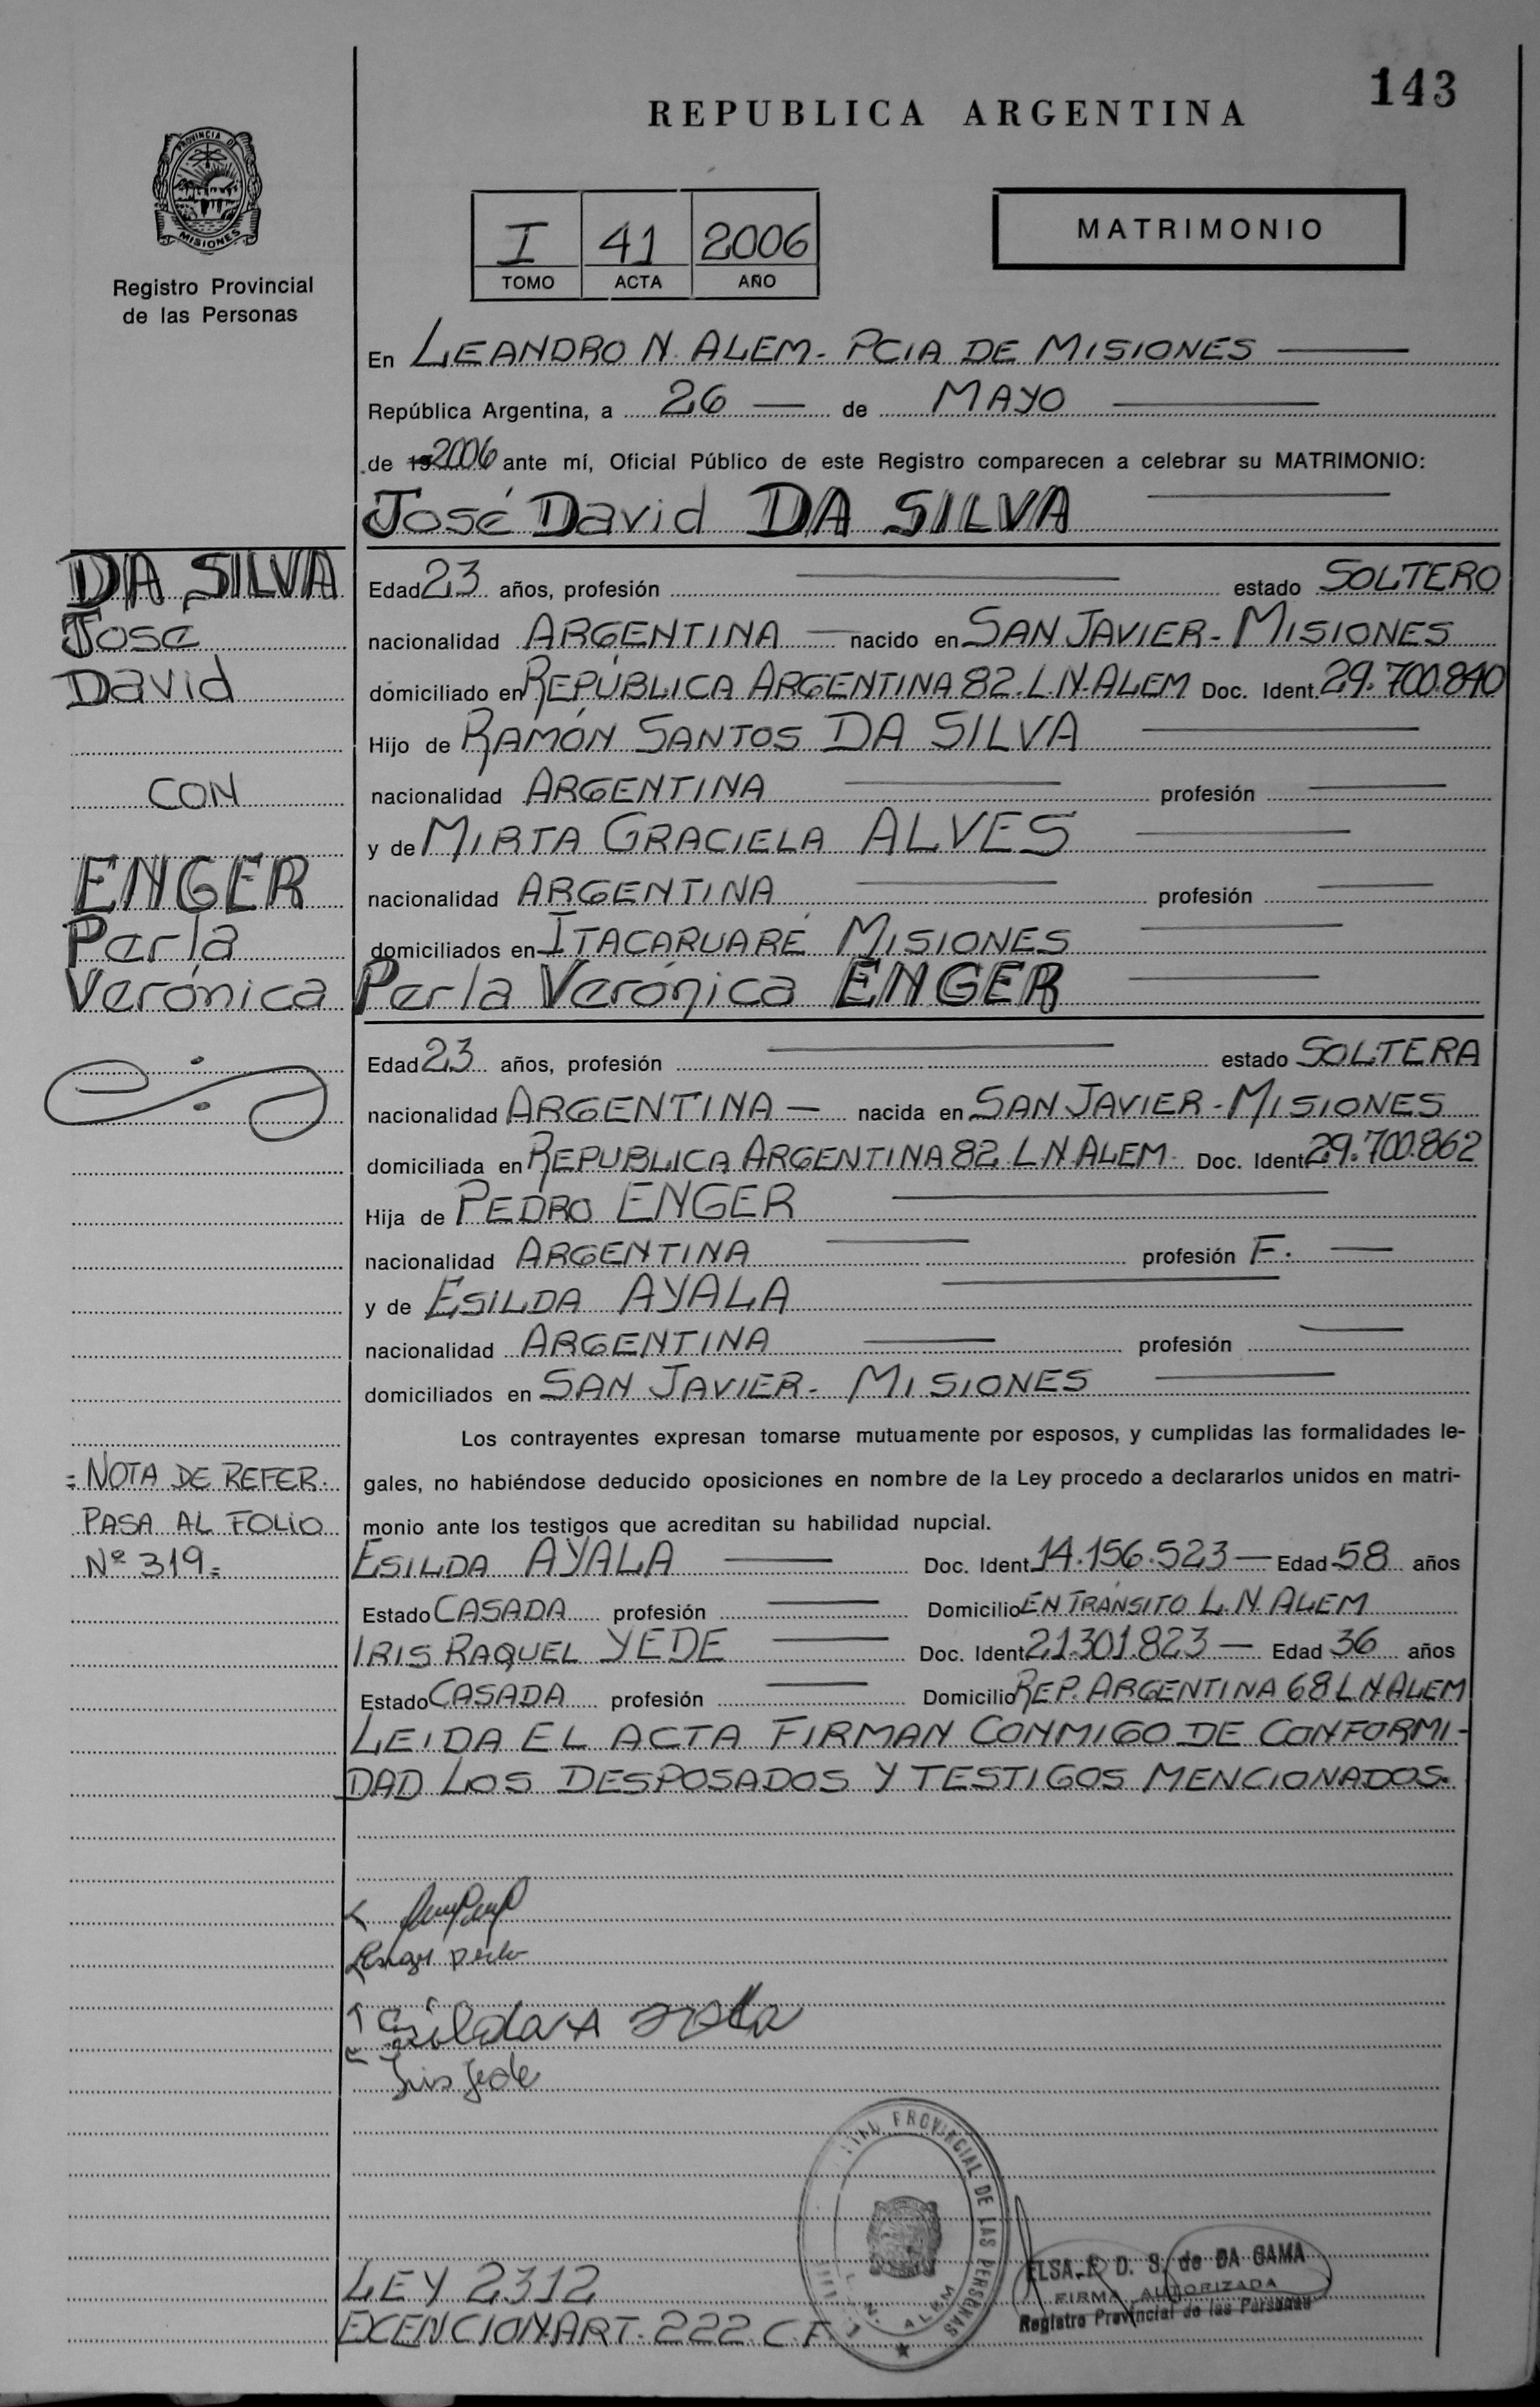 143
REPUBLICA ARGENTINA
PROVINCIA DE
MISIONES
Registro Provincial
de las Personas
I 41 2006
TOMO ACTA AÑO
MATRIMONIO
En LEANDRO N. ALEM - PCIA DE MISIONES
República Argentina, a 26 de MAYO
de 19 2006 ante mí, Oficial Público de este Registro comparecen a celebrar su MATRIMONIO:
José David DA SILVA
DA SILVA
José
David
CON
ENGER
Perla
Verónica
Edad 23 años, profesión estado SOLTERO
nacionalidad ARGENTINA nacido en SAN JAVIER - MISIONES
domiciliado en REPÚBLICA ARGENTINA 82. L.N. ALEM Doc. Ident. 29.700.840
Hijo de RAMÓN SANTOS DA SILVA
nacionalidad ARGENTINA profesión
y de MIRTA GRACIELA ALVES
nacionalidad ARGENTINA profesión
domiciliados en ITACARUARÉ MISIONES
Perla Verónica ENGER
Edad 23 años, profesión estado SOLTERA
nacionalidad ARGENTINA nacida en SAN JAVIER - MISIONES
domiciliada en REPUBLICA ARGENTINA 82 L N ALEM Doc. Ident. 29.700.862
Hija de PEDRO ENGER
nacionalidad ARGENTINA profesión F.
y de ESILDA AYALA
nacionalidad ARGENTINA profesión
domiciliados en SAN JAVIER - MISIONES
Los contrayentes expresan tomarse mutuamente por esposos, y cumplidas las formalidades le-
gales, no habiéndose deducido oposiciones en nombre de la Ley procedo a declararlos unidos en matri-
monio ante los testigos que acreditan su habilidad nupcial.
= NOTA DE REFER.
PASA AL FOLIO
Nº 319 =
ESILDA AYALA Doc. Ident. 14.156.523 Edad 58 años
Estado CASADA profesión Domicilio EN TRÁNSITO L. N. ALEM
IRIS RAQUEL YEDE Doc. Ident. 21.301.823 Edad 36 años
Estado CASADA profesión Domicilio REP. ARGENTINA 68 L N ALEM
LEIDA EL ACTA FIRMAN CONMIGO DE CONFORMI-
DAD LOS DESPOSADOS Y TESTIGOS MENCIONADOS.
Enger Perla
Iris Yede
PROVINCIAL DE LAS PERSONAS
L. N. ALEM
ELSA F. D. S. de DA GAMA
FIRMA AUTORIZADA
Registro Provincial de las Personas
LEY 2312
EXENCION ART. 222 C.F.